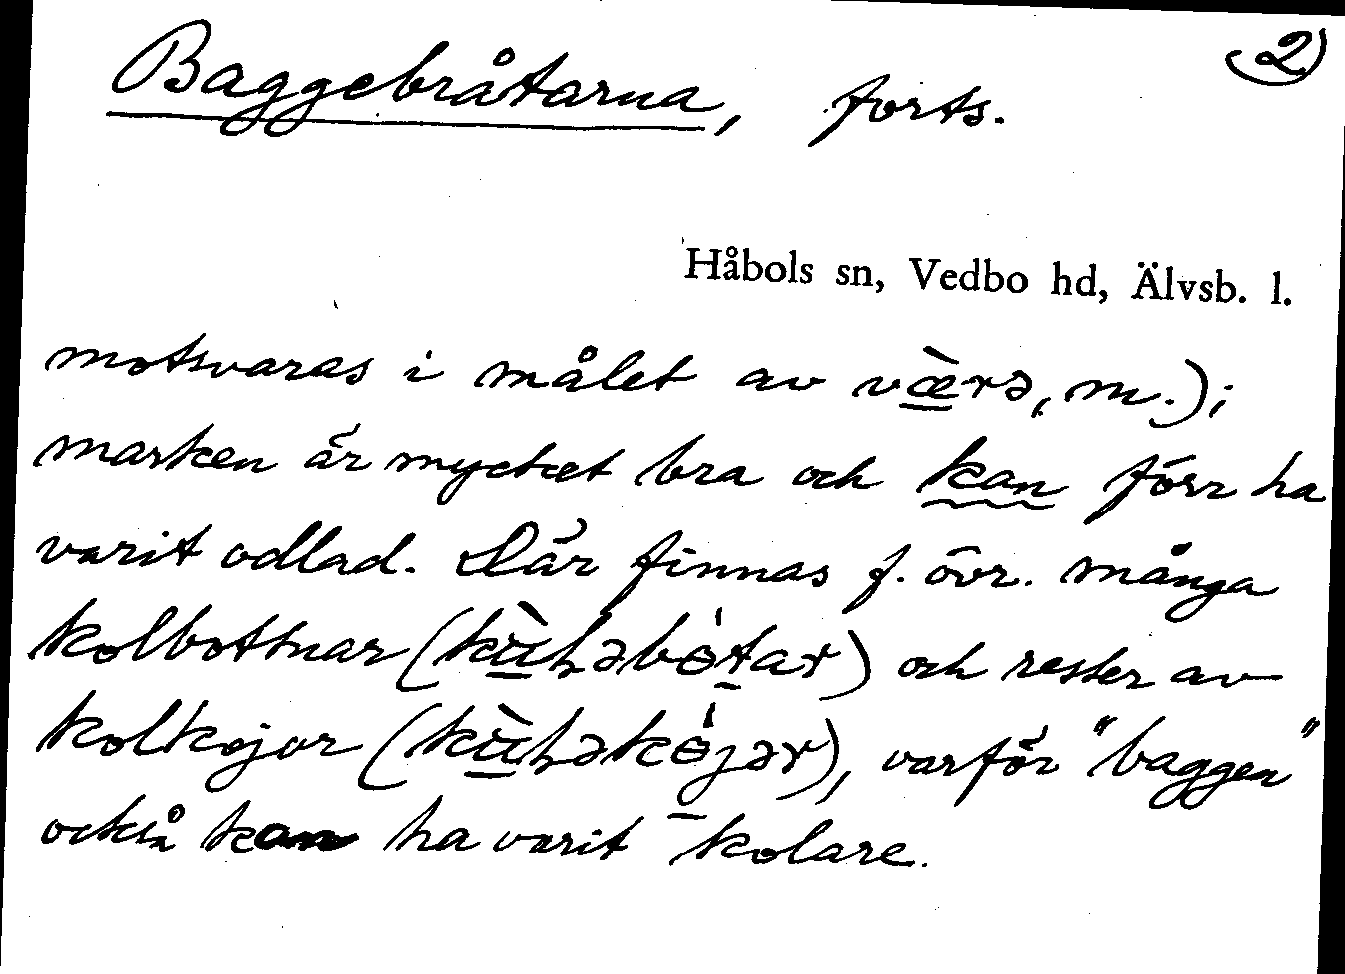 Baggebråtarna, forts.
2
Håbols sn, Vedbo hd, Älvsb. l.
motsvaras i målet av væ̀rə, m.);
marken är mycket bra och kan förr ha
varit odlad. Där finnas f. övr. många
kolbottnar ( ) och rester av
kolkojor ( ), varför "baggen"
också kan ha varit kolare.